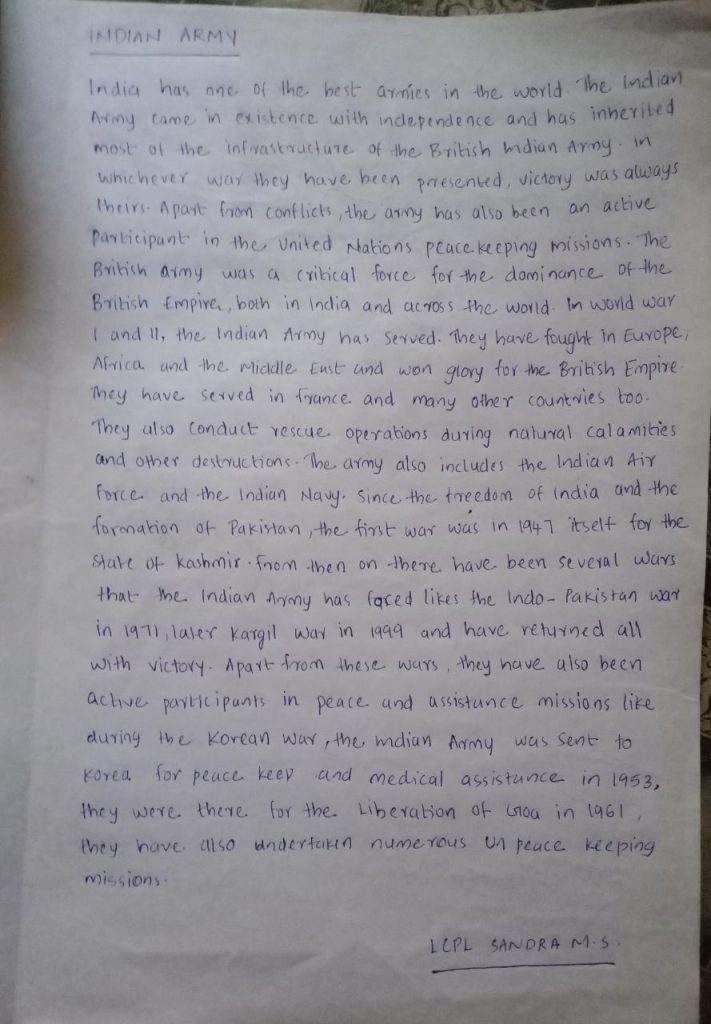 INDIAN ARMY
India has one of the best armies in the world. The Indian
Army came in existence with independence and has inherited
most of the infrastructure of the British Indian Army. In
whichever war they have been presented, victory was always
theirs. Apart from conflicts, the army has also been an active
participant in the United Nations peacekeeping missions. The
British army was a critical force for the dominance of the
British Empire, both in India and across the world. In world war
I and II, the Indian Army has served. They have fought in Europe,
Africa and the Middle East and won glory for the British Empire.
They have served in france and many other countries too.
They also conduct rescue operations during natural calamities
and other destructions. The army also includes the Indian Air
Force and the Indian Navy. Since the freedom of India and the
formation of Pakistan, the first war was in 1947 itself for the
state of Kashmir. From then on there have been several wars
that the Indian Army has faced likes the Indo-Pakistan war
in 1971, later Kargil war in 1999 and have returned all
with victory. Apart from these wars, they have also been
active participants in peace and assistance missions like
during the Korean war, the Indian Army was sent to
Korea for peace keep and medical assistance in 1953,
they were there for the Liberation of Goa in 1961,
they have also undertaken numerous UN peace keeping
missions.
LCPL SANDRA M.S.